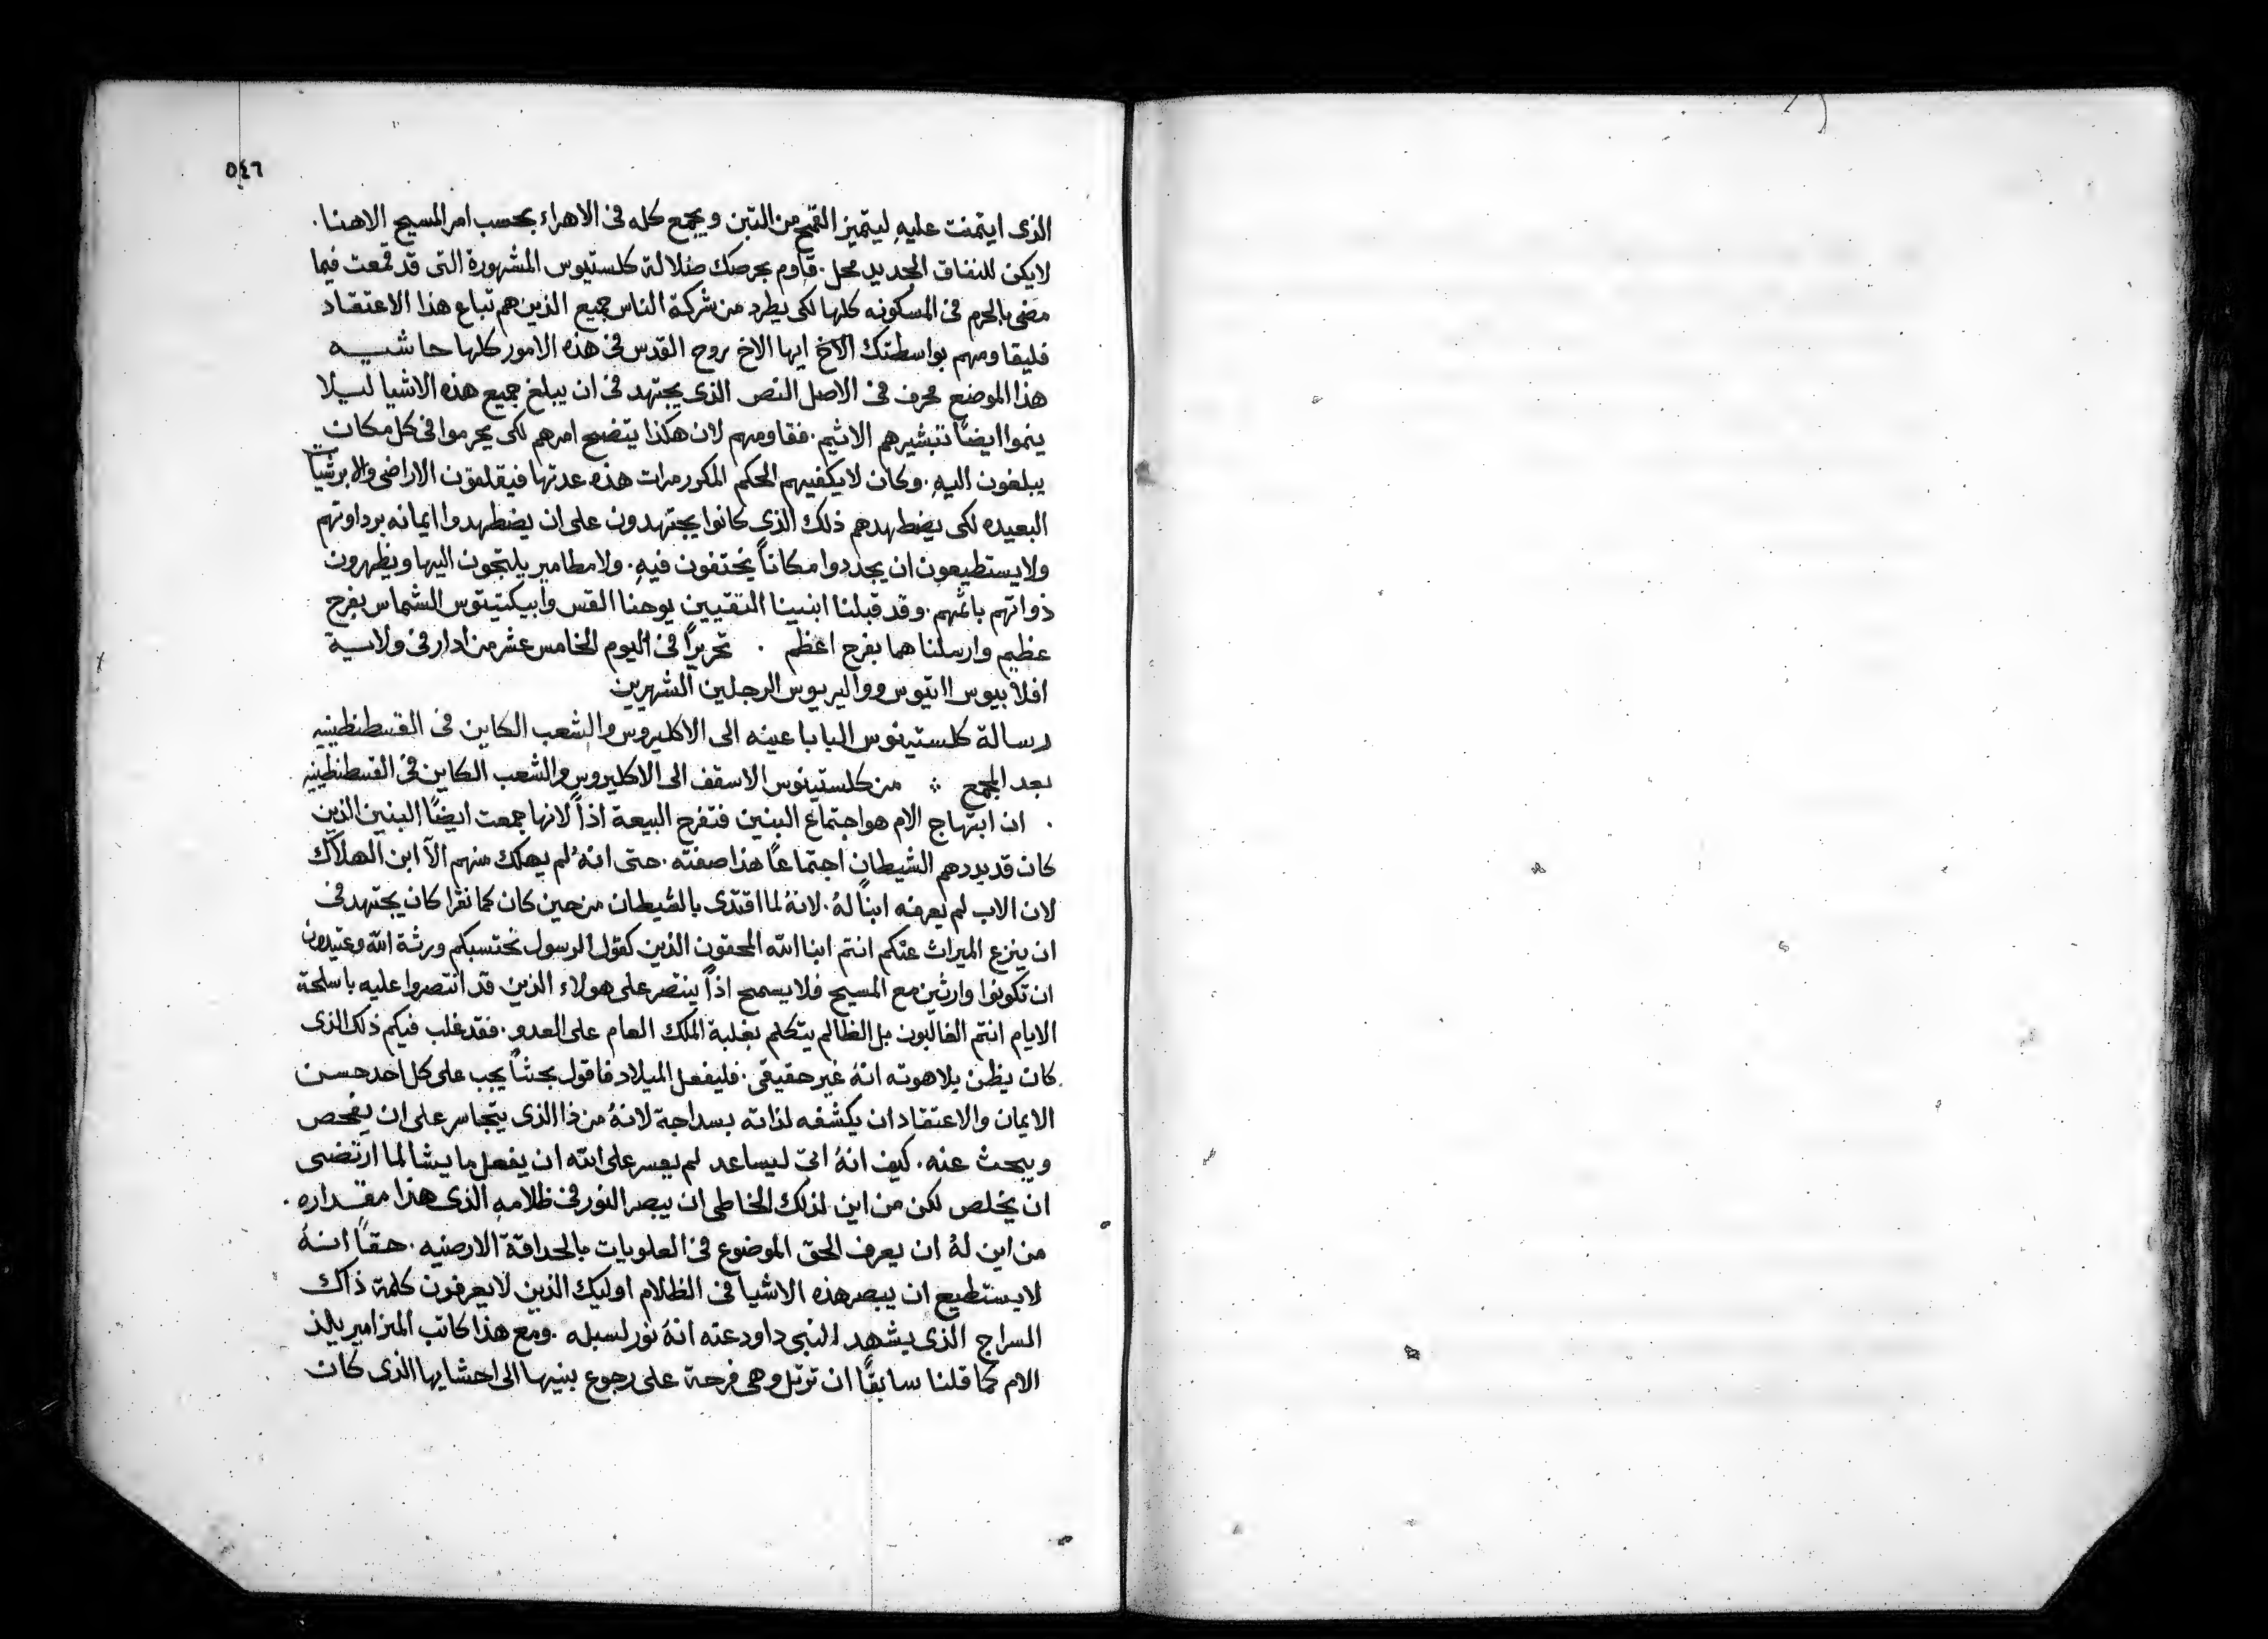 ٥٤٦
الذى ايتمنت عليهِ ليتميز القمح من التبن ويجمع كله فى الاهراء بحسب امر المسيح الاهنا .
لايكن للنفاق الجديد محل . قاوم بحرصك ضلالة كلستيوس المشهورة التى قد قمعت فيما
مضى بالحرم فى المسكونه كلها لكى يطرد من شركة الناس جميع الذين هم تباع هذا الاعتقاد
فليقاومهم بواسطتك الاخ ايها الاخ بروح القدس فى هذه الامور كلها حاشيـه
هذا الموضع محرف فى الاصل النص الذى يجتهد فى ان يبلغ جميع هذه الاشيا ليلا
ينموا ايضًا تبشيرهم الاثيم . فقاومهم لان هكذا يتضح امرهم لكى يحرموا فى كل مكان
يبلغون اليهِ . وكان لايكفيهم الحكم المكرر مرات هذه عدتها فيقلقون الاراضى والابرشيات
البعيده لكى يضطهدهم ذلك الذى كانوا يجتهدون على ان يضطهدوا ايمانه برداوتهم
ولايستطيعون ان يجدوا مكاناً يختفون فيهِ . ولا مطامير يلتجون اليها ويظهرون
ذواتهم باثمهم . وقد قبلنا ابنينا التقيين يوحنا القس وابيكتيتوس الشماس بفرح
عظيم وارسلناهما بفرح اعظم . تحريرًا فى اليوم الخامس عشر من ادار فى ولايـة
افلابيوس اانتيوس وواليريوس الرجلين الشهيرين
رسالة كلستينوس البابا عينه الى الاكليروس والشعب الكاين فى القسطنطينيه
بعد المجمع ∴ من كلستينوس الاسقف الى الاكليروس والشعب الكاين فى القسطنطينيه
. ان ابتهاج الام هو اجتماع البنين فتفرح البيعة اذاً لانها جمعت ايضًا البنين الذين
كان قد بددهم الشيطان اجتماعًا هذا صفته . حتى انهُ لم يهلك منهم الّا ابن الهلاك
لان الاب لم يعرفه ابنًا لهُ . لانهُ لما اقتدى بالشيطان من حين كان كما نقرا كان يجتهد فى
ان ينزع الميراث عنكم انتم ابنا الله المحقون الذين كقول الرسول نحتسبكم ورثة الله وعتيدون
ان تكونوا وارثين مع المسيح فلا يسمح اذاً ينتصر على هولاء الذين قد انتصروا عليه باسلحة
الايام انتم الغالبون بل الظالم يتكلم بغلبة الملك العام على العدو . فقد غلب فيكم ذلك الذى
كان يظن بلاهوته انهُ غير حقيقى . فليفعل الميلاد فاقول بحثاً يجب على كل احد حسن
الايمان والاعتقاد ان يكشفه لذاته بسداجة لانهُ من ذا الذى يتجاسر على ان يفحص
ويبحث عنه . كيف انهُ اتى ليساعد لم يعسر على الله ان يفعل ما يشا لما ارتضى
ان يخلص لكن من اين لذلك الخاطى ان يبصر النور فى ظلامهِ الذى هذا مقداره .
من اين لهُ ان يعرف الحق الموضوع فى العلويات بالحداقة الارضيه . حقاً انـهُ
لايستطيع ان يبصر هذه الاشيا فى الظلام اوليك الذين لايعرفون كلمة ذاك
السراج الذى يشهد النبى داود عنه انهُ نور لسبله . ومع هذا كاتب المزامير يلذ
الام كما قلنا سابقًا ان ترتل وهى فرحة على رجوع بنيها الى احشايها الذى كان